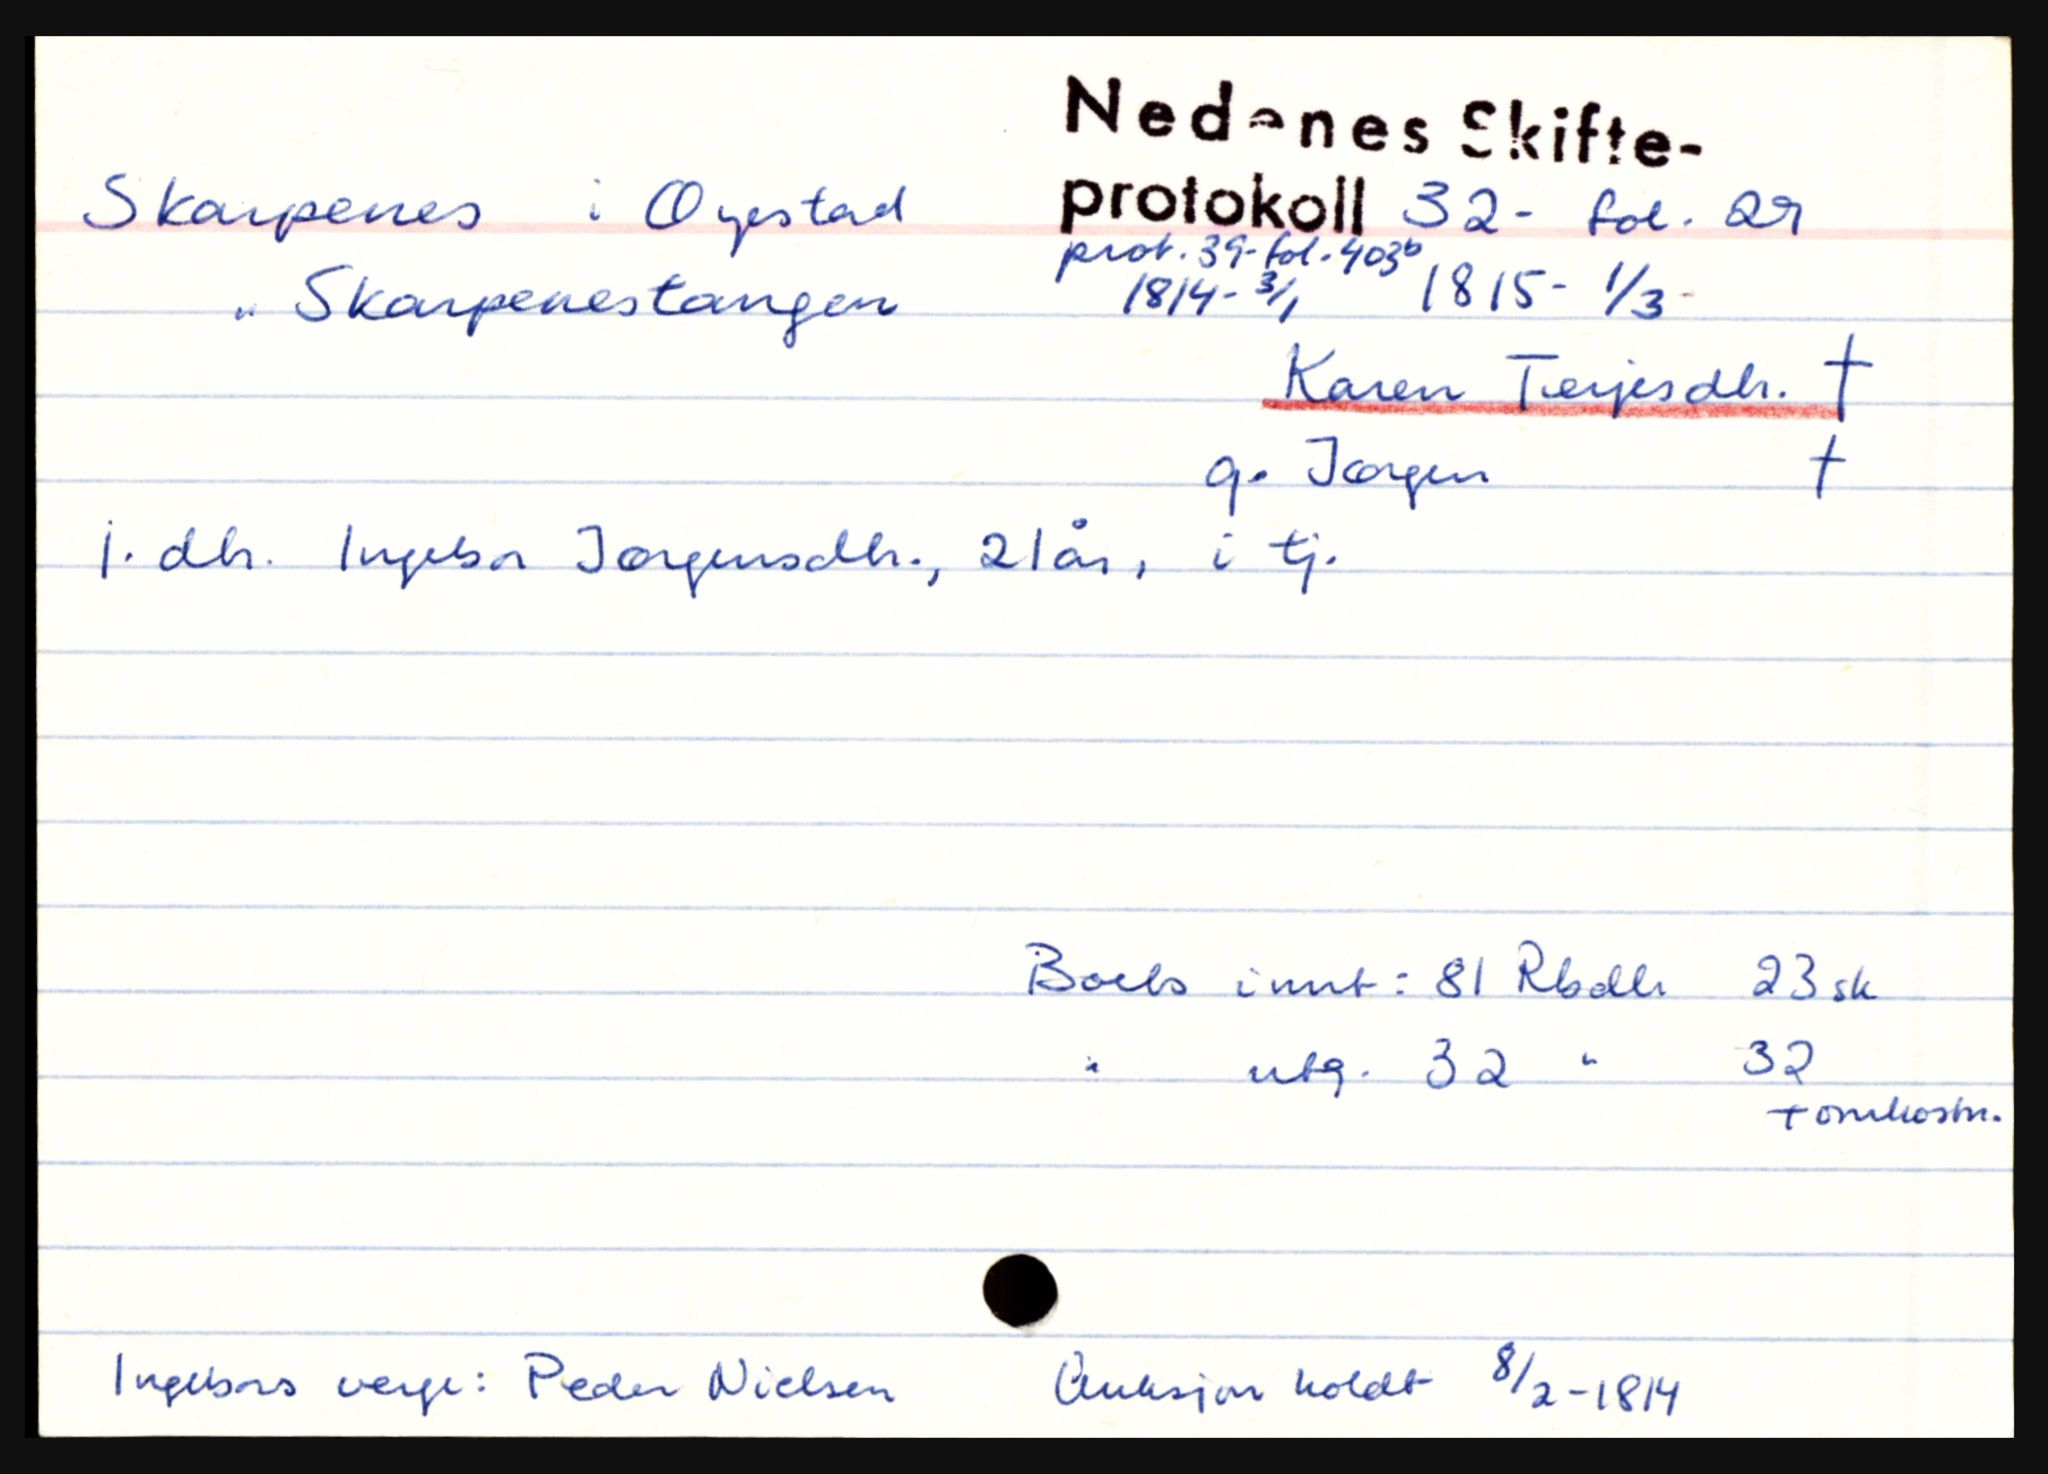 Nedenes Skifte-
Skarpenes i Øyestad protokoll 32 - fol. 29
prot. 39 - fol. 403b
" Skarpenestangen 1814 - 3/1 1815 - 1/3 -
Karen Terjesdtr. †
g. Jørgen †
1. dtr. Ingebor Jørgensdtr., 21 år, i tj.
Boets innt: 81 Rbdlr 23 sk
" utg. 32 " 32
+ omkostn.
Ingebors verge: Peder Nielsen Auksjon holdt 8/2 - 1814